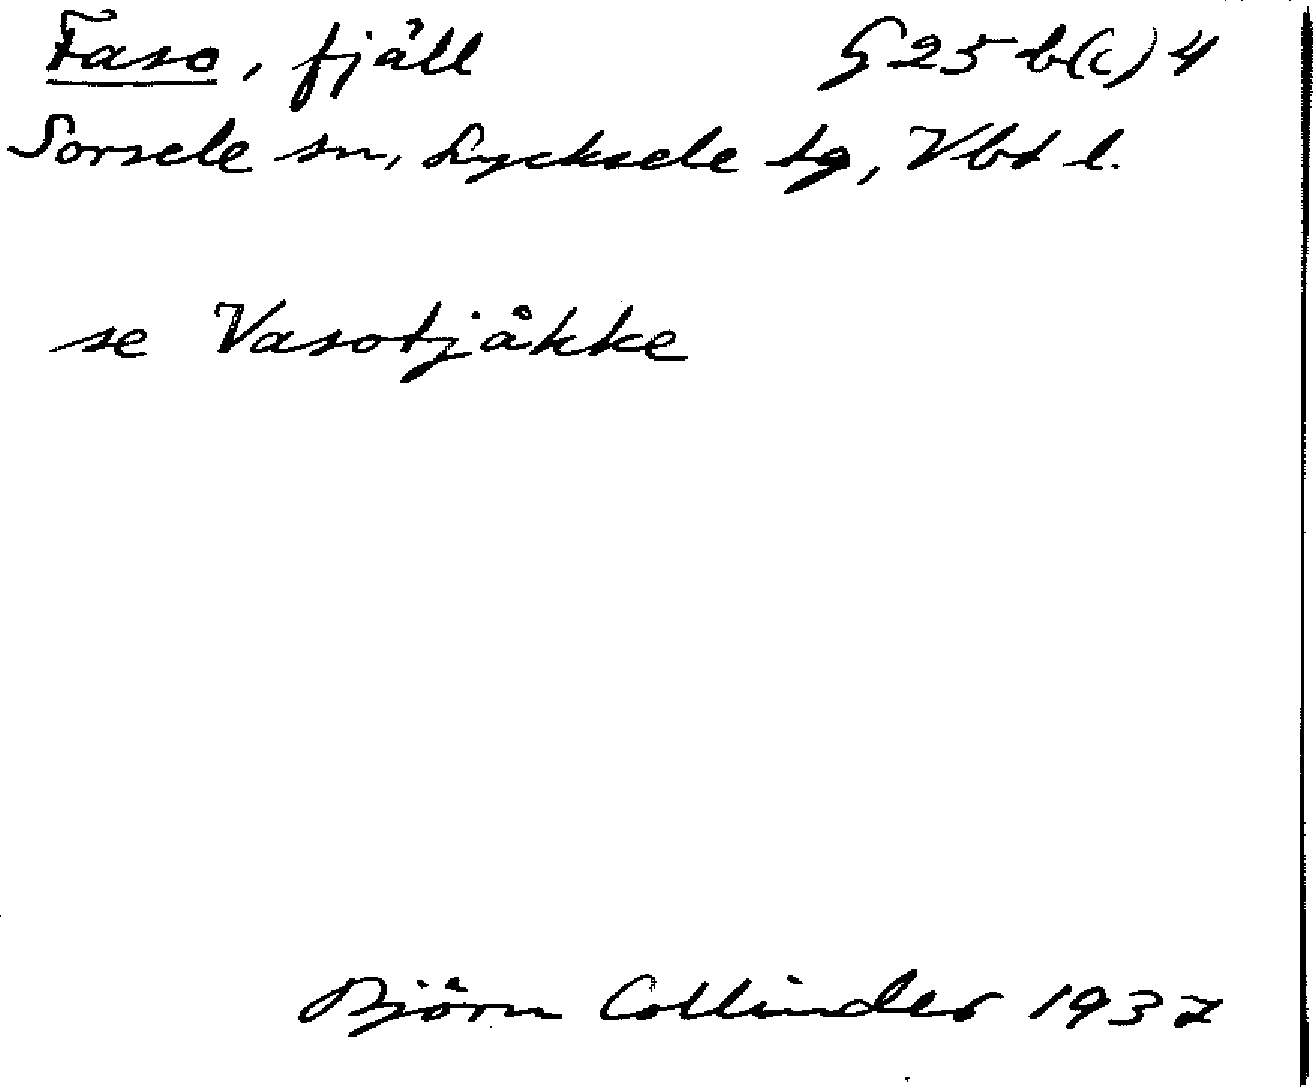 Faso, fjäll G 25 b(c) 4
Sorsele sn, Lycksele tg, Vbt l.
se Vasotjåkke
Björn Collinder 1937